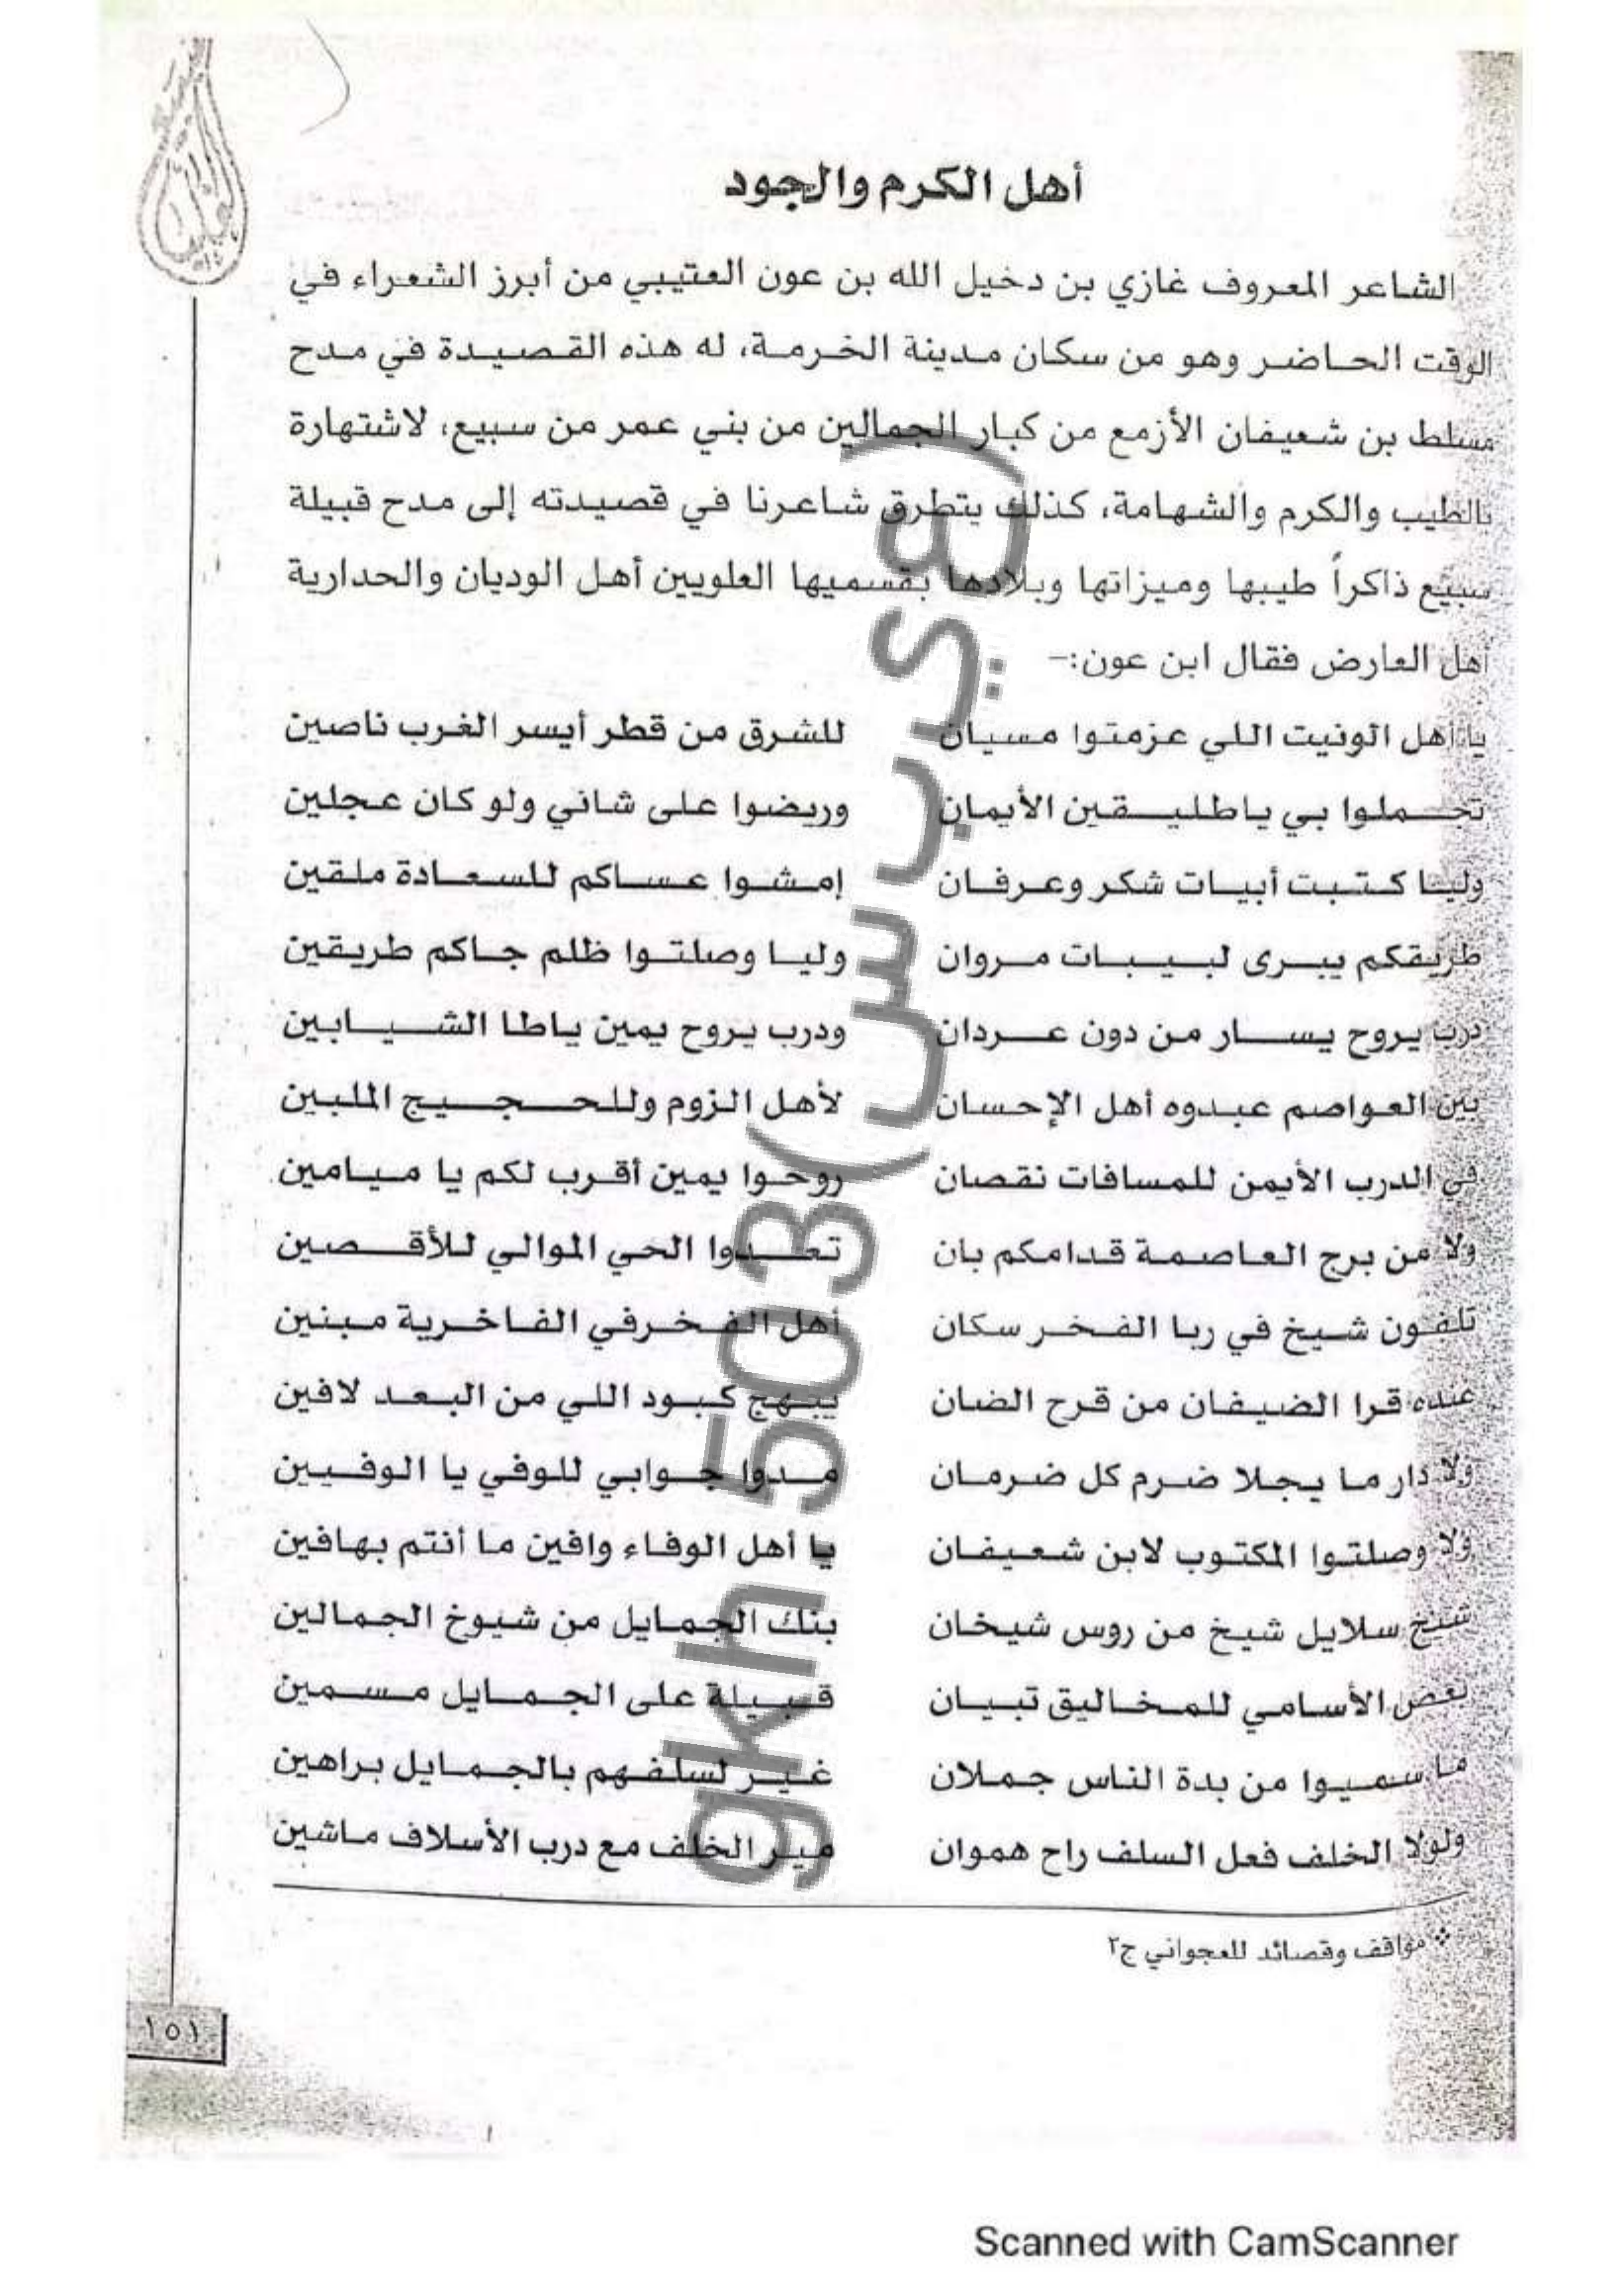 أهل الكرم والجود
الشاعر المعروف غازي بن دخيل الله بن عون العتيبي من أبرز الشعراء في
الوقت الحاضر وهو من سكان مدينة الخرمة، له هذه القصيدة في مدح
مسلط بن شعيفان الأزمع من كبار الجمالين من بني عمر من سبيع، لاشتهارة
بالطيب والكرم والشهامة، كذلك يتطرق شاعرنا في قصيدته إلى مدح قبيلة
سبيع ذاكراً طيبها وميزاتها وبلادها بقسميها العلويين أهل الوديان والحدارية
أهل العارض فقال ابن عون:–
يا أهل الونيت اللي عزمتوا مسيان للشرق من قطر أيسر الغرب ناصين
تحملوا بي ياطليقين الأيمان وريضوا على شاني ولو كان عجلين
وليا كتبت أبيات شكر وعرفان إمشوا عساكم للسعادة ملقين
طريقكم يبرى لبيبات مروان وليا وصلتوا ظلم جاكم طريقين
درب يروح يسار من دون عردان ودرب يروح يمين ياطا الشيابين
بين العواصم عبدوه أهل الإحسان لأهل الزوم وللحجيج الملبين
في الدرب الأيمن للمسافات نقصان روحوا يمين أقرب لكم يا ميامين
ولا من برج العاصمة قدامكم بان تعدوا الحي الموالي للأقصين
تلفون شيخ في ربا الفخر سكان أهل الفخرفي الفاخرية مبنين
عنده قرا الضيفان من قرح الضان يبهج كبود اللي من البعد لافين
ولا دار ما يجلا ضرم كل ضرمان مدوا جوابي للوفي يا الوفيين
ولا وصلتوا المكتوب لابن شعيفان يا أهل الوفاء وافين ما أنتم بهافين
شيخ سلايل شيخ من روس شيخان بنك الجمايل من شيوخ الجمالين
بعض الأسامي للمخاليق تبيان قبيلة على الجمايل مسمين
ما سميوا من بدة الناس جملان غير لسلفهم بالجمايل براهين
ولولا الخلف فعل السلف راح هموان مير الخلف مع درب الأسلاف ماشين
❖ مواقف وقصائد للعجواني ج٢
١٥١
gkh 503
Scanned with CamScanner